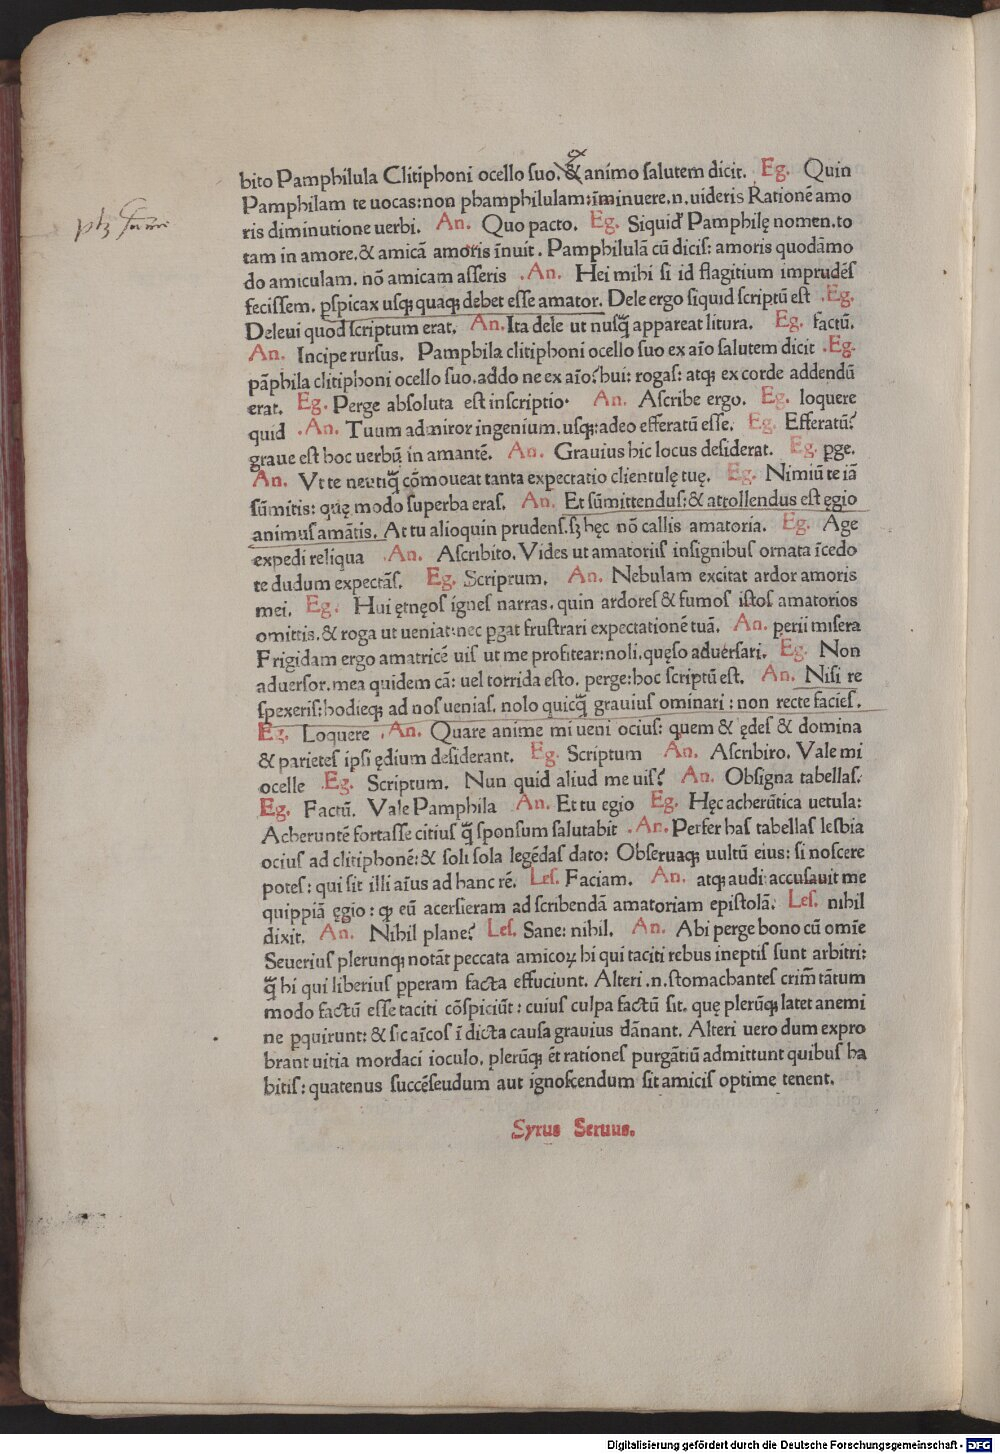 bito Pamphilula Clitiphoni ocello suo. & animo salutem dicit. Eg. Quin
Pamphilam te uocas: non phamphilulam: īminuere .n. uideris Rationē amo
ris diminutione uerbi. An. Quo pacto. Eg. Siquid Pamphilę nomen. to
tam in amore. & amicā amoris īnuit. Pamphilulā cū dicis: amoris quodāmo
do amiculam. nō amicam asseris . An. Hei mihi si id flagitium imprudēs
fecissem. ꝑspicax usq; quaq; debet esse amator. Dele ergo siquid scriptū est . Eg.
Deleui quod scriptum erat. An. Ita dele ut nusq̄ appareat litura. Eg. factū.
An. Incipe rursus. Pamphila clitiphoni ocello suo ex aīo salutem dicit . Eg.
pāphila clitiphoni ocello suo. addo ne ex aīo? hui: rogas: atq; ex corde addendū
erat. Eg. Perge absoluta est inscriptio. An. Ascribe ergo. Eg. loquere
quid . An. Tuum admiror ingenium. usq; adeo efferatū esse. Eg. Efferatū?
graue est hoc uerbū in amantē. An. Grauius hic locus desiderat. Eg. ꝑge.
An. Vt te neutiq̄ cōmoueat tanta expectatio clientulę tuę. Eg. Nimiū te iā
sūmitis: quę modo superba eras. An. Et sūmittendus: & attollendus est ęgio
animus amātis. At tu alioquin prudens. sꝫ hęc nō callis amatoria. Eg. Age
expedi reliqua . An. Ascribito. Vides ut amatoriis insignibus ornata īcedo
te dudum expectās. Eg. Scriptum. An. Nebulam excitat ardor amoris
mei. Eg. Hui ętnęos ignes narras. quin ardores & fumos istos amatorios
omittis. & roga ut ueniat: nec ꝑgat frustrari expectationē tuā. An. perii misera
Frigidam ergo amatricē uis ut me profitear: noli. quęso aduersari. Eg. Non
aduersor. mea quidem cā: uel torrida esto. perge: hoc scriptū est. An. Nisi re
spexeris: hodieq; ad nos uenias. nolo quicq̄ grauius ominari: non recte facies.
Eg. Loquere . An. Quare anime mi ueni ocius: quem & ędes & domina
& parietes ipsi ędium desiderant. Eg. Scriptum An. Ascribito. Vale mi
ocelle Eg. Scriptum. Nun quid aliud me uis? An. Obsigna tabellas.
Eg. Factū. Vale Pamphila An. Et tu egio Eg. Hęc acherūtica uetula:
Acheruntē fortasse citius q̄ sponsum salutabit . An. Perfer has tabellas lesbia
ocius ad clitiphonē: & soli sola legēdas dato: Obseruaq; uultū eius: si noscere
potes: qui sit illi aīus ad hanc rē. Les. Faciam. An. atq; audi accusauit me
quippiā ęgio: ꝙ eū acersieram ad scribendā amatoriam epistolā. Les. nihil
dixit. An. Nihil plane? Les. Sane: nihil. An. Abi perge bono cū omīe
Seuerius plerunq; notāt peccata amicoꝝ hi qui taciti rebus ineptis sunt arbitri:
q̄ hi qui liberius ꝑperam facta effuciunt. Alteri .n. stomachantes crim̄ tātum
modo factū esse taciti cōspiciūt: cuius culpa factū sit. quę plerūq; latet anemi
ne ꝑquirunt: & sic aīcos ī dicta causa grauius dānant. Alteri uero dum expro
brant uitia mordaci ioculo. plerūq; ēt rationes purgātiū admittunt quibus ha
bitis: quatenus succēseudum aut ignoscendum sit amicis optime tenent.
Syrus Seruus.
Digitalisierung gefördert durch die Deutsche Forschungsgemeinschaft - DFG